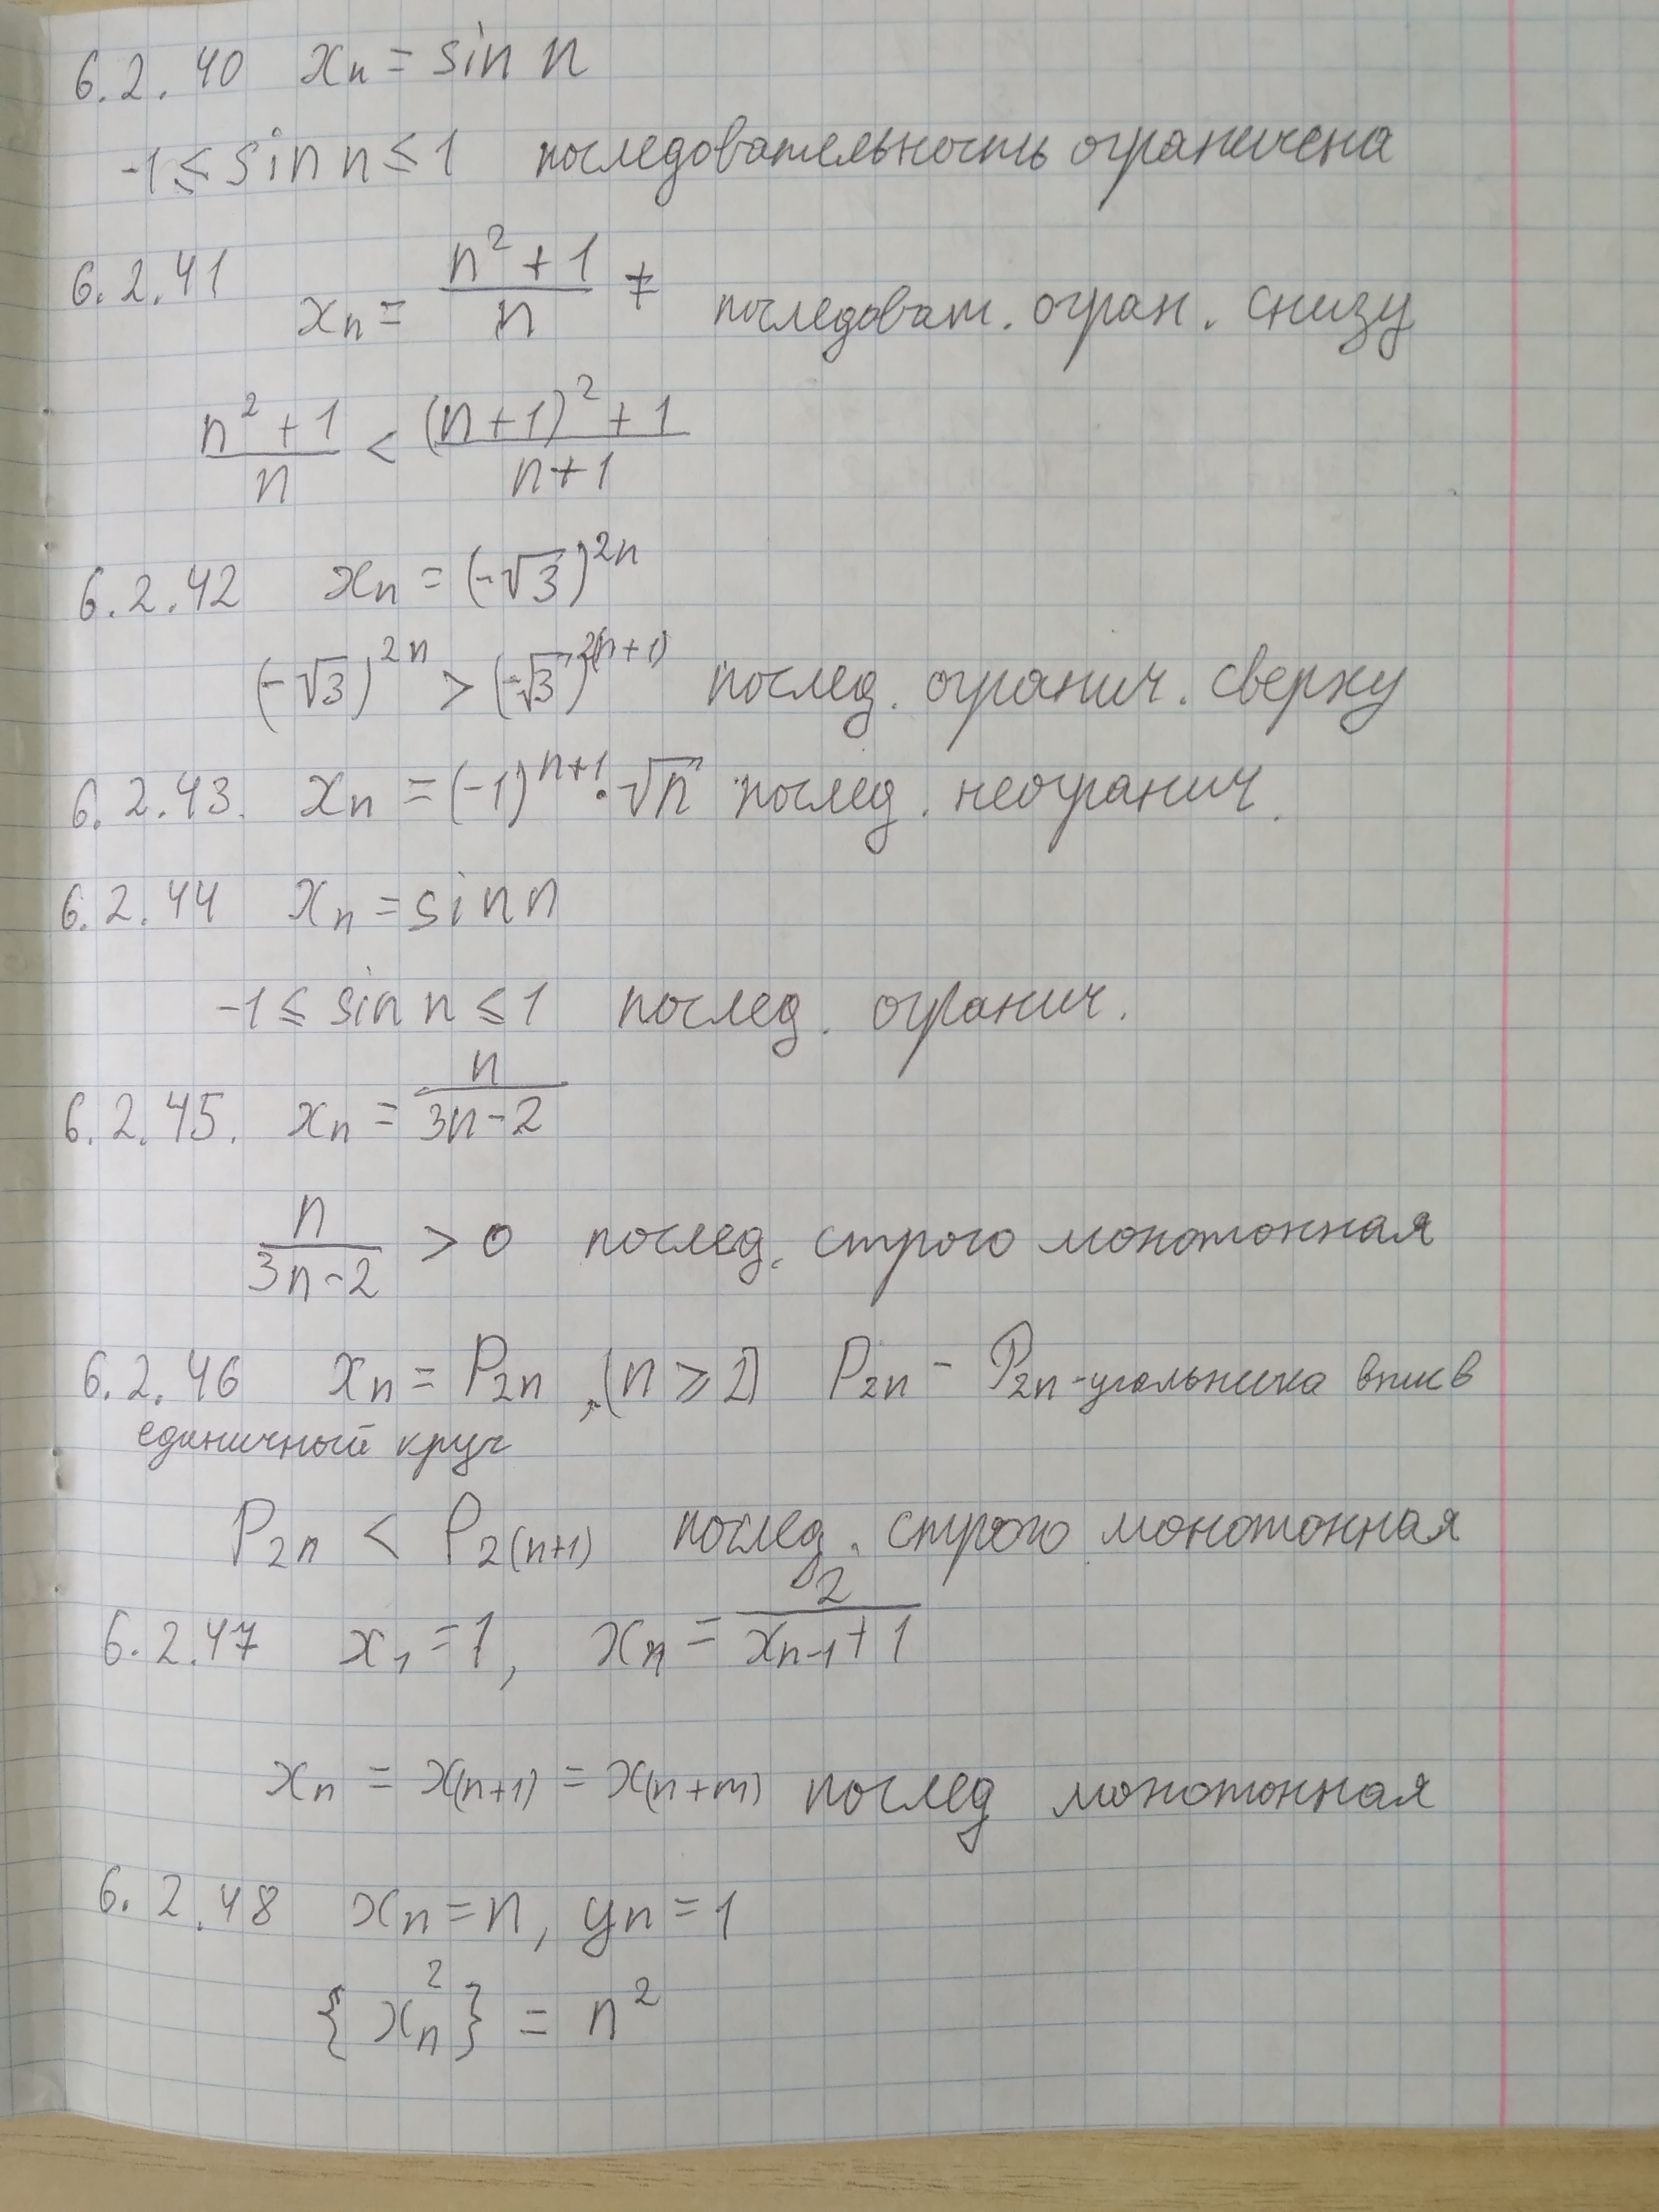 6.2.40 xₙ = sin n
-1 ≤ sin n ≤ 1 последовательность ограничена
6.2.41 xₙ = (n² + 1)/n ≠ последоват. огран. снизу
(n² + 1)/n < ((n+1)² + 1)/(n+1)
6.2.42 xₙ = (-√3)²ⁿ
(-√3)²ⁿ > (-√3)²⁽ⁿ⁺¹⁾ послед. огранич. сверху
6.2.43. xₙ = (-1)ⁿ⁺¹ · √n послед. неогранич.
6.2.44 xₙ = sin n
-1 ≤ sin n ≤ 1 послед. огранич.
6.2.45. xₙ = n/(3n-2)
n/(3n-2) > 0 послед. строго монотонная
6.2.46 xₙ = P₂ₙ, (n ≥ 2) P₂ₙ - P₂ₙ-угольника впис в
единичный круг
P₂ₙ < P₂₍ₙ₊₁₎ послед. строго монотонная
6.2.47 x₁ = 1, xₙ = 2/(xₙ₋₁ + 1)
xₙ = x₍ₙ₊₁₎ = x₍ₙ₊ₘ₎ послед монотонная
6.2.48 xₙ = n, yₙ = 1
{xₙ²} = n²